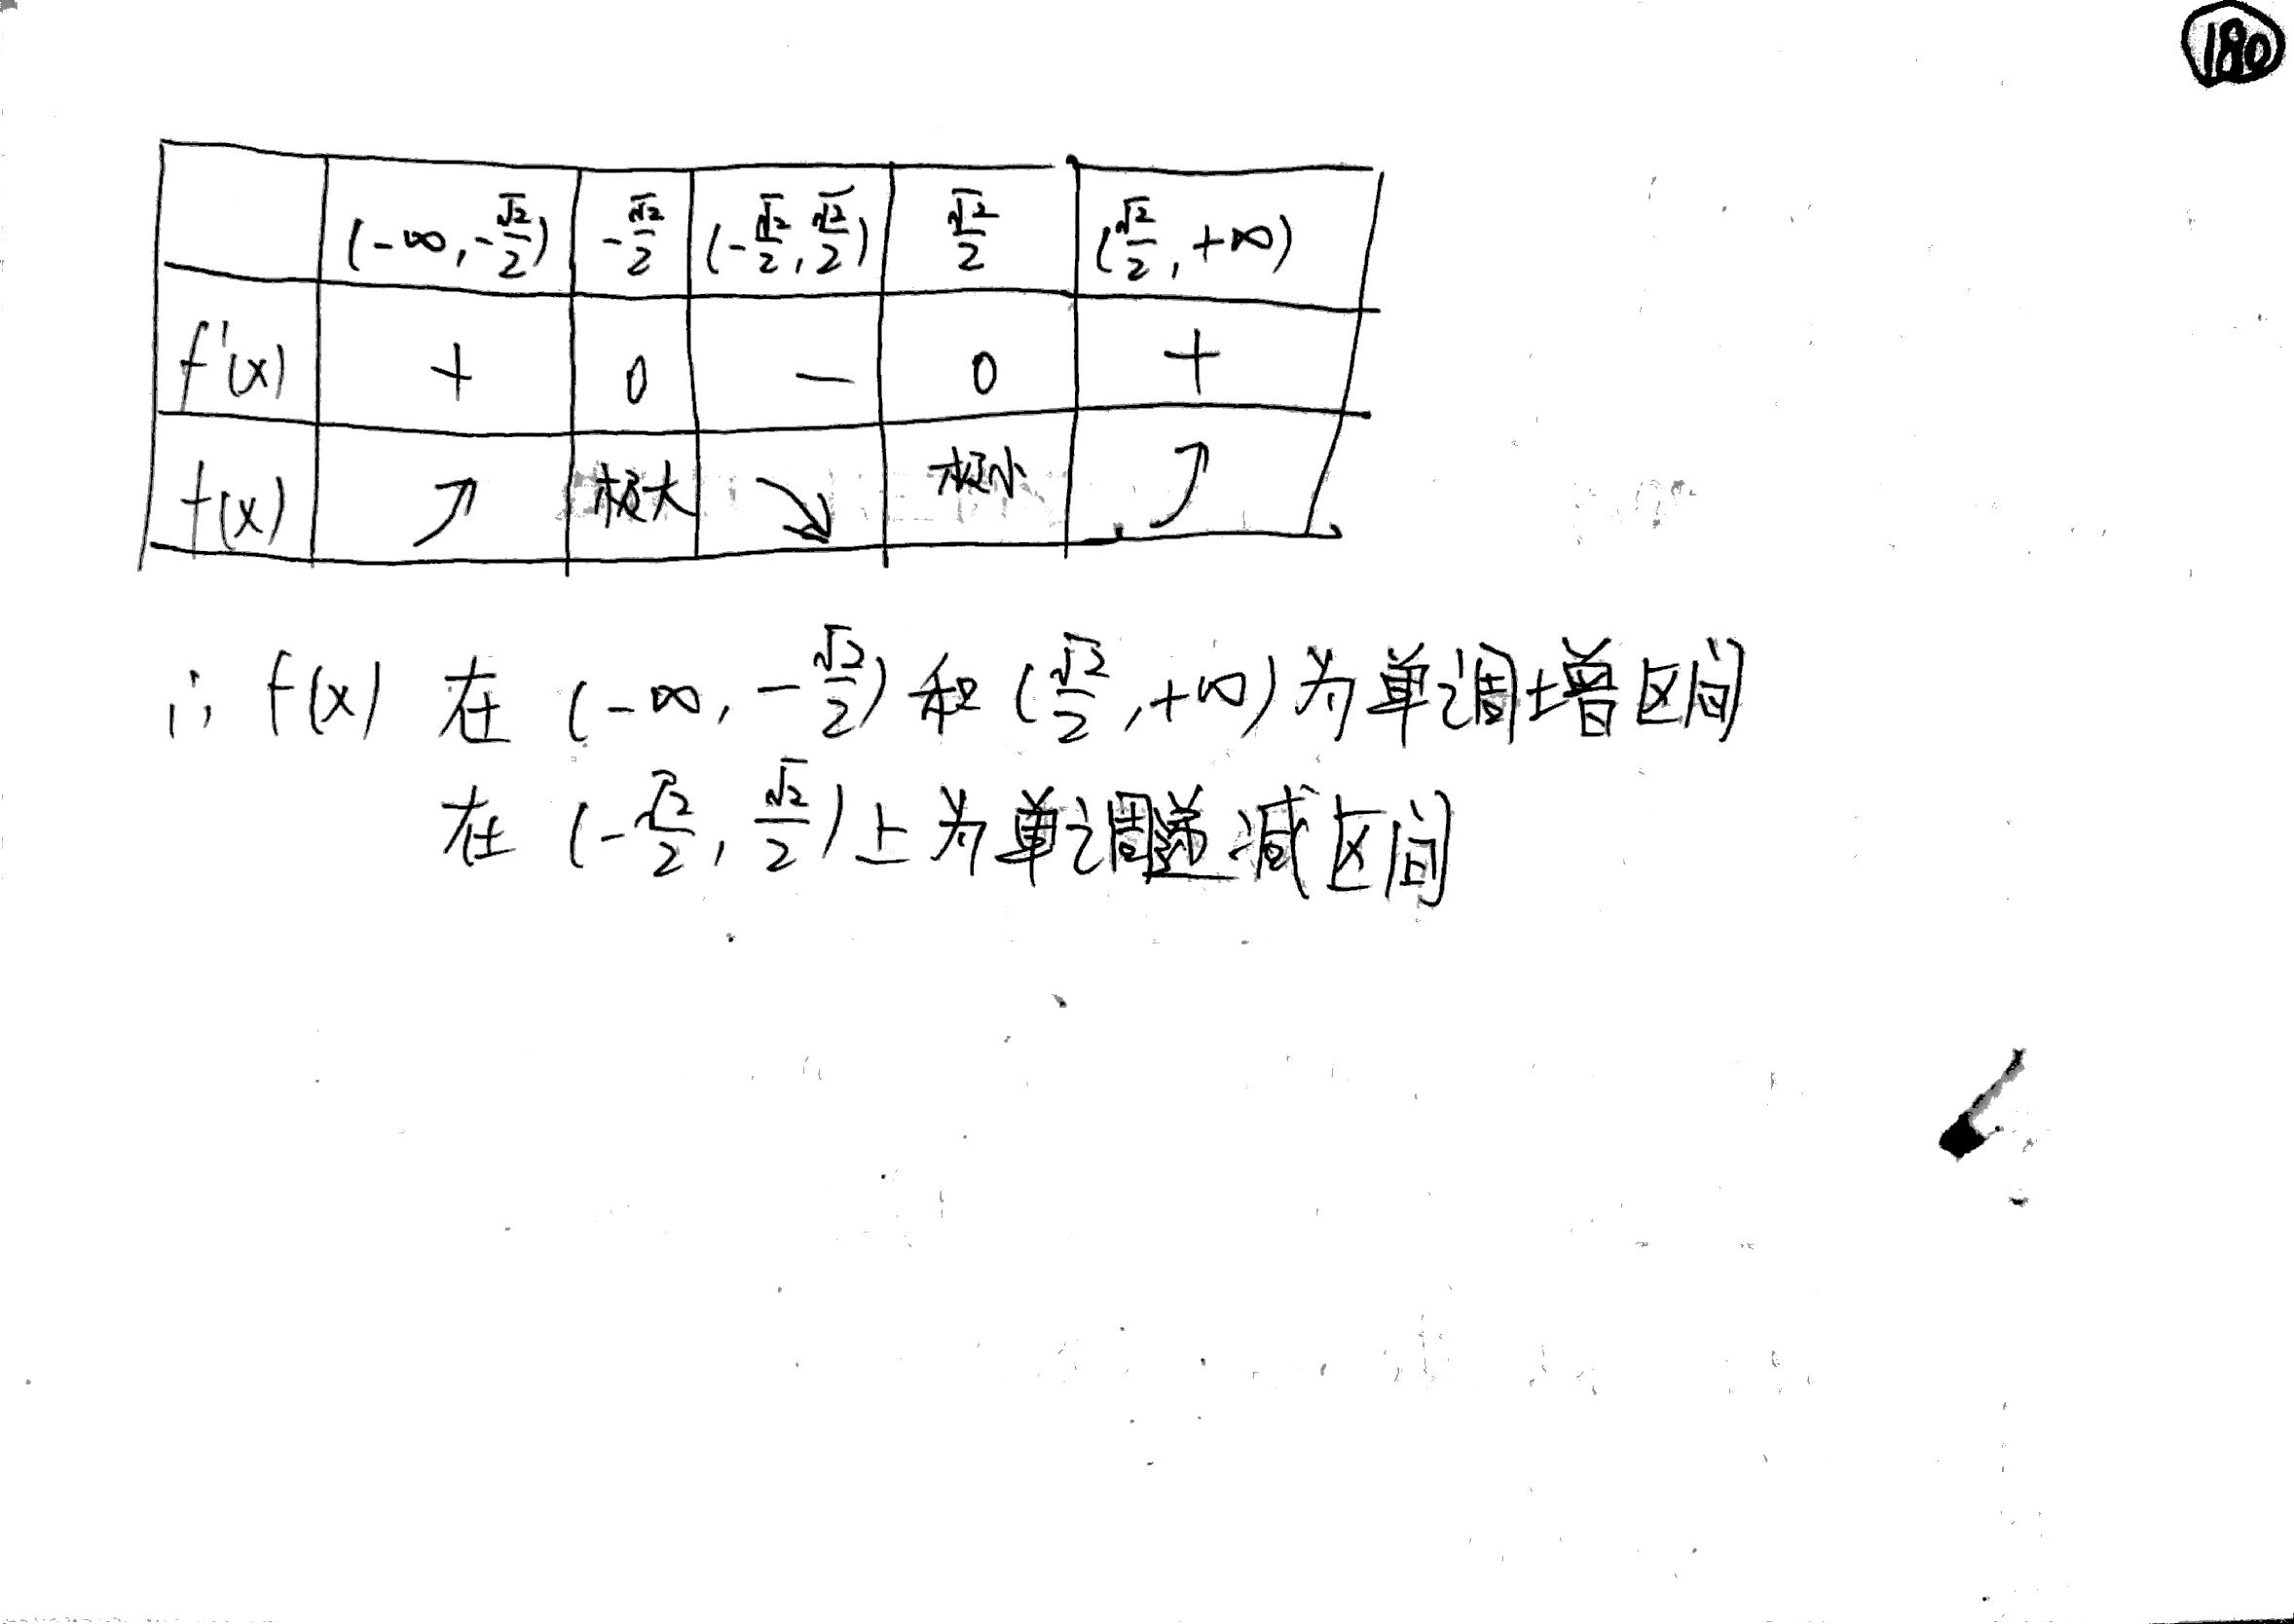 180
(-∞, -√2/2) -√2/2 (-√2/2, √2/2) √2/2 (√2/2, +∞)
f'(x) + 0 − 0 +
f(x) ↗ 极大 ↘ 极小 ↗
∴ f(x) 在 (-∞, -√2/2) 和 (√2/2, +∞) 为单调增区间
在 (-√2/2, √2/2) 上为单调递减区间